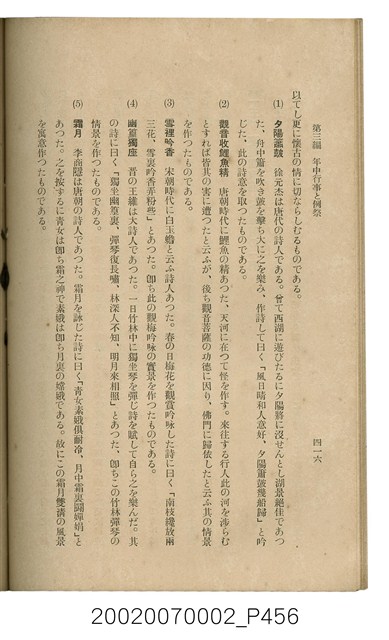 第三編　年中行事と例祭
四一六
以てし更に懷古の情に切ならしむるものである。
(1) 夕陽簫鼓　徐元杰は唐代の詩人である。曾て西湖に遊びたるに夕陽將に沒せんとし湖景絕佳であつ
た、舟中簫を吹き鼓を擊ち大に之を樂み、作詩して曰く「風日晴和人意好、夕陽簫鼓幾船歸」と吟
じた、此の詩意を取つたものである。
(2) 觀音收鯉魚精　唐朝時代に鯉魚の精あつた、天河に在つて怪を作す。來往する行人此の河を涉らむ
とすれば皆其の害に遭つたと云ふが、後ち觀音菩薩の功德に因り、佛門に歸依したと云ふ其の情景
を作つたものである。
(3) 雪裡吟香　宋朝時代に白玉蟾と云ふ詩人あつた。春の日梅花を觀賞吟咏した詩に曰く「南枝纔放兩
三花、雪裏吟香弄粉些」とあつた。卽ち此の觀梅吟咏の實景を作つたものである。
(4) 幽篁獨座　晋の王維は大詩人であつた。一日竹林中に獨坐琴を彈じ詩を賦して自ら之を樂んだ。其
の詩に曰く「獨坐幽篁裏、彈琴復長嘯、林深人不知、明月來相照」とあつた、卽ちこの竹林彈琴の
情景を作つたものである。
(5) 霜月　李商隱は唐朝の詩人であつた。霜月を詠じた詩に曰く「青女素娥俱耐冷、月中霜裏鬪嬋娟」と
あつた。之を按ずるに青女は卽ち霜之神で素娥は卽ち月裏の嫦娥である。故にこの霜月雙清の風景
を寓意作つたものである。
20020070002_P456